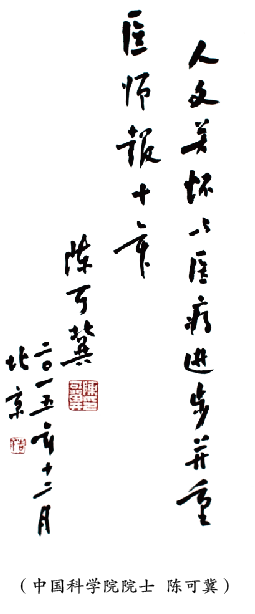 人文关怀与医疗进步并重
医师报十年
陈可冀
二〇一五年十二月
北京
（中国科学院院士 陈可冀）